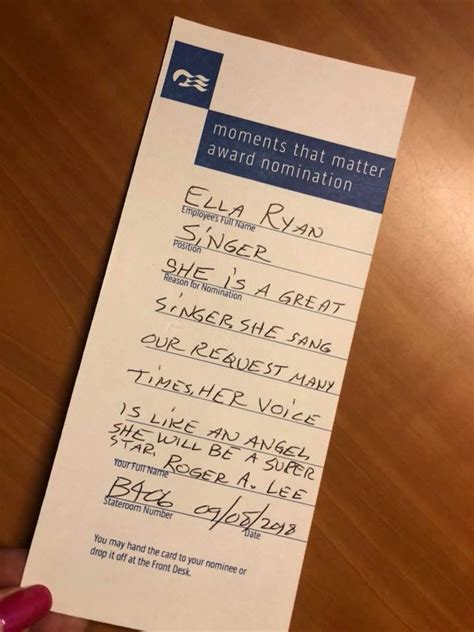 moments that matter
award nomination
ELLA RYAN
Employee's Full Name
SINGER
Position
SHE IS A GREAT
Reason for Nomination
SINGER, SHE SANG
OUR REQUEST MANY
TIMES, HER VOICE
IS LIKE AN ANGEL,
SHE WILL BE A SUPER
STAR. ROGER A. LEE
Your Full Name
B406 09/08/2018
Stateroom Number Date
You may hand the card to your nominee or
drop it off at the Front Desk.